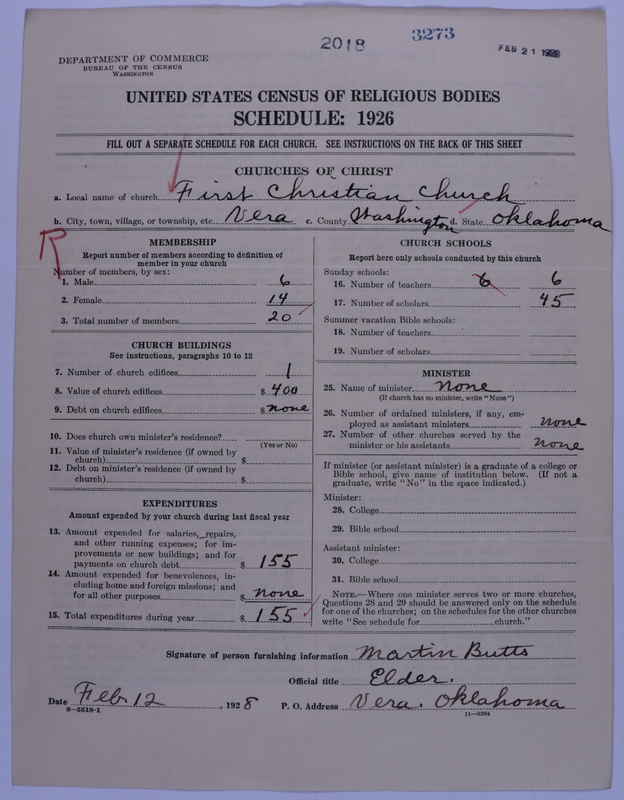 2018 3273 FEB 21 1928
DEPARTMENT OF COMMERCE
BUREAU OF THE CENSUS
WASHINGTON
UNITED STATES CENSUS OF RELIGIOUS BODIES
SCHEDULE: 1926
FILL OUT A SEPARATE SCHEDULE FOR EACH CHURCH. SEE INSTRUCTIONS ON THE BACK OF THIS SHEET
CHURCHES OF CHRIST
a. Local name of church First Christian Church
b. City, town, village, or township, etc. Vera c. County Washington d. State Oklahoma
R
MEMBERSHIP
Report number of members according to definition of
member in your church
Number of members, by sex:
1. Male 6
2. Female 14
3. Total number of members 20
CHURCH BUILDINGS
See instructions, paragraphs 10 to 12
7. Number of church edifices 1
8. Value of church edifices $ 400
9. Debt on church edifices $ none
10. Does church own minister's residence?
(Yes or No)
11. Value of minister's residence (if owned by
church) $
12. Debt on minister's residence (if owned by
church) $
EXPENDITURES
Amount expended by your church during last fiscal year
13. Amount expended for salaries, repairs,
and other running expenses; for im-
provements or new buildings; and for
payments on church debt $ 155
14. Amount expended for benevolences, in-
cluding home and foreign missions; and
for all other purposes $ none
15. Total expenditures during year $ 155
CHURCH SCHOOLS
Report here only schools conducted by this church
Sunday schools:
16. Number of teachers 6 6
17. Number of scholars 45
Summer vacation Bible schools:
18. Number of teachers
19. Number of scholars
MINISTER
25. Name of minister None
(If church has no minister, write "None")
26. Number of ordained ministers, if any, em-
ployed as assistant ministers none
27. Number of other churches served by the
minister or his assistants none
If minister (or assistant minister) is a graduate of a college or
Bible school, give name of institution below. (If not a
graduate, write "No" in the space indicated.)
Minister:
28. College
29. Bible school
Assistant minister:
30. College
31. Bible school
NOTE.—Where one minister serves two or more churches,
Questions 28 and 29 should be answered only on the schedule
for one of the churches; on the schedules for the other churches
write "See schedule for church."
Signature of person furnishing information Martin Butts
Official title Elder.
Date Feb. 12, 1928 P. O. Address Vera. Oklahoma
8—5518-1 11—9204